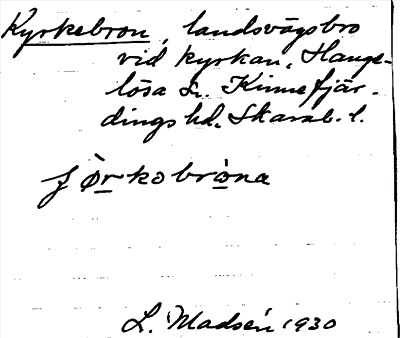 Kyrkebron, landsvägsbro
vid kyrkan, Hangelösa
lösa sn. Kinnefjär-
dings hd. Skarab. l.
ʃø̀rkəbróna
L. Madsén 1930